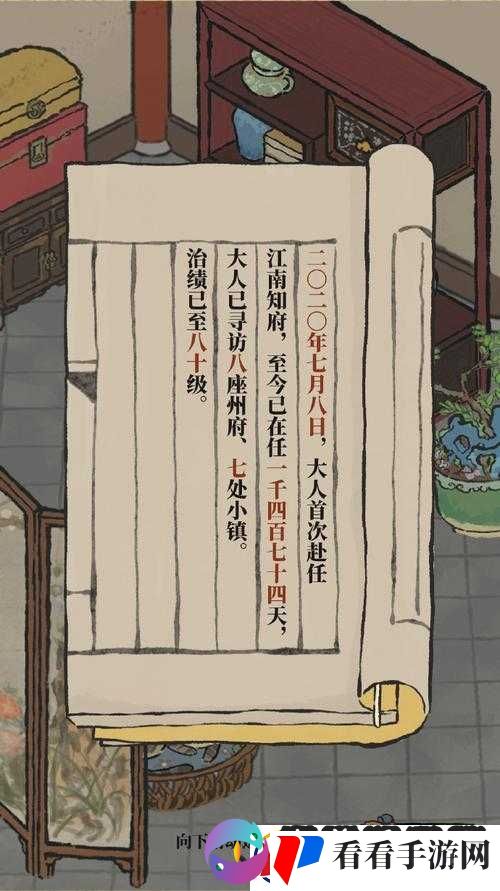 二〇二〇年七月八日，大人首次赴任
江南知府，至今已在任一千四百七十四天，
大人已寻访八座州府、七处小镇。
治绩已至八十级。
向下
看看手游网